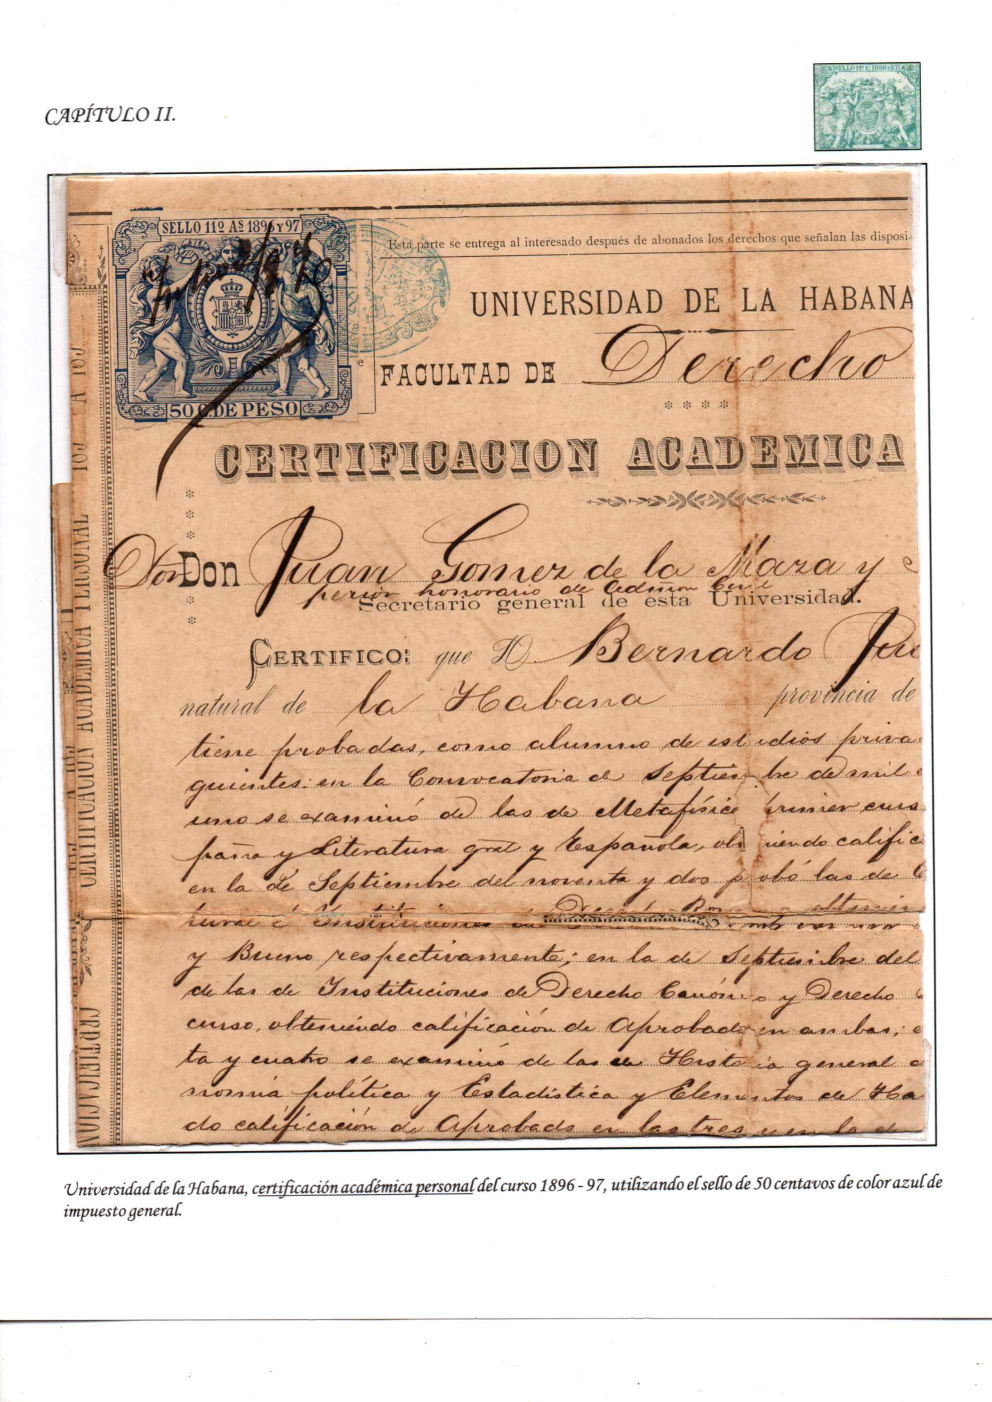 CAPÍTULO II.
SELLO 11º Aˢ 1896 Y 97
SELLO 11º AS 1896 Y 97
50 C. DE PESO
Esta parte se entrega al interesado después de abonados los derechos que señalan las disposi
UNIVERSIDAD DE LA HABANA
FACULTAD DE Derecho
CERTIFICACION ACADEMICA
Don Juan Gomez de la Maza y
honorario de Admon Civil
Secretario general de esta Universidad.
CERTIFICO: que D. Bernardo
natural de la Habana provincia de
tiene probadas, como alumno de estudios priva
guientes: en la Convocatoria de Septiembre de mil
uno se examinó de las de Metafísica primer curs
paña y Literatura gral y Española, obteniendo calific
en la de Septiembre del noventa y dos probó las de
é Instituciones de
y Bueno respectivamente; en la de Septiembre del
de las de Instituciones de Derecho Canónico y Derecho
curso, obteniendo calificación de Aprobado en ambas; e
ta y cuatro se examinó de las de Historia general
nomía política y Estadística y Elementos de Ha
do calificación de Aprobado en las tres y en la de
CERTIFICACION ACADEMICA PERSONAL
Universidad de la Habana, certificación académica personal del curso 1896 - 97, utilizando el sello de 50 centavos de color azul de
impuesto general.